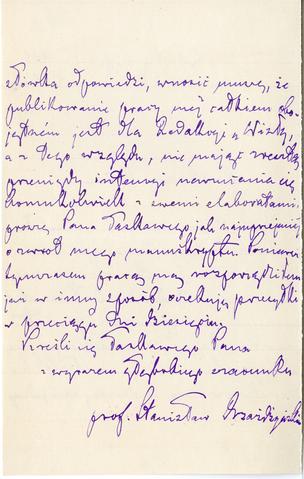 słówka odpowiedzi, wnosić muszę, że
publikowanie pracy mej całkiem obo-
jętném jest dla Redakcyi „Wisły„
a z tego względu, nie mając zresztą
intencyi narzucania się
komukolwiek z swemi elaboratami,
proszę Pana Łaskawego jak najuprzejmiej
o zwrot mego manuskryptu. Ponieważ
tymczasem pracą mą rozporządziłem
już w inny sposób, oczekuję przesyłki
w przeciągu dni dziesięciu.
Kreślę się Łaskawego Pana
z wyrazem głębokiego szacunku
prof. Stanisław